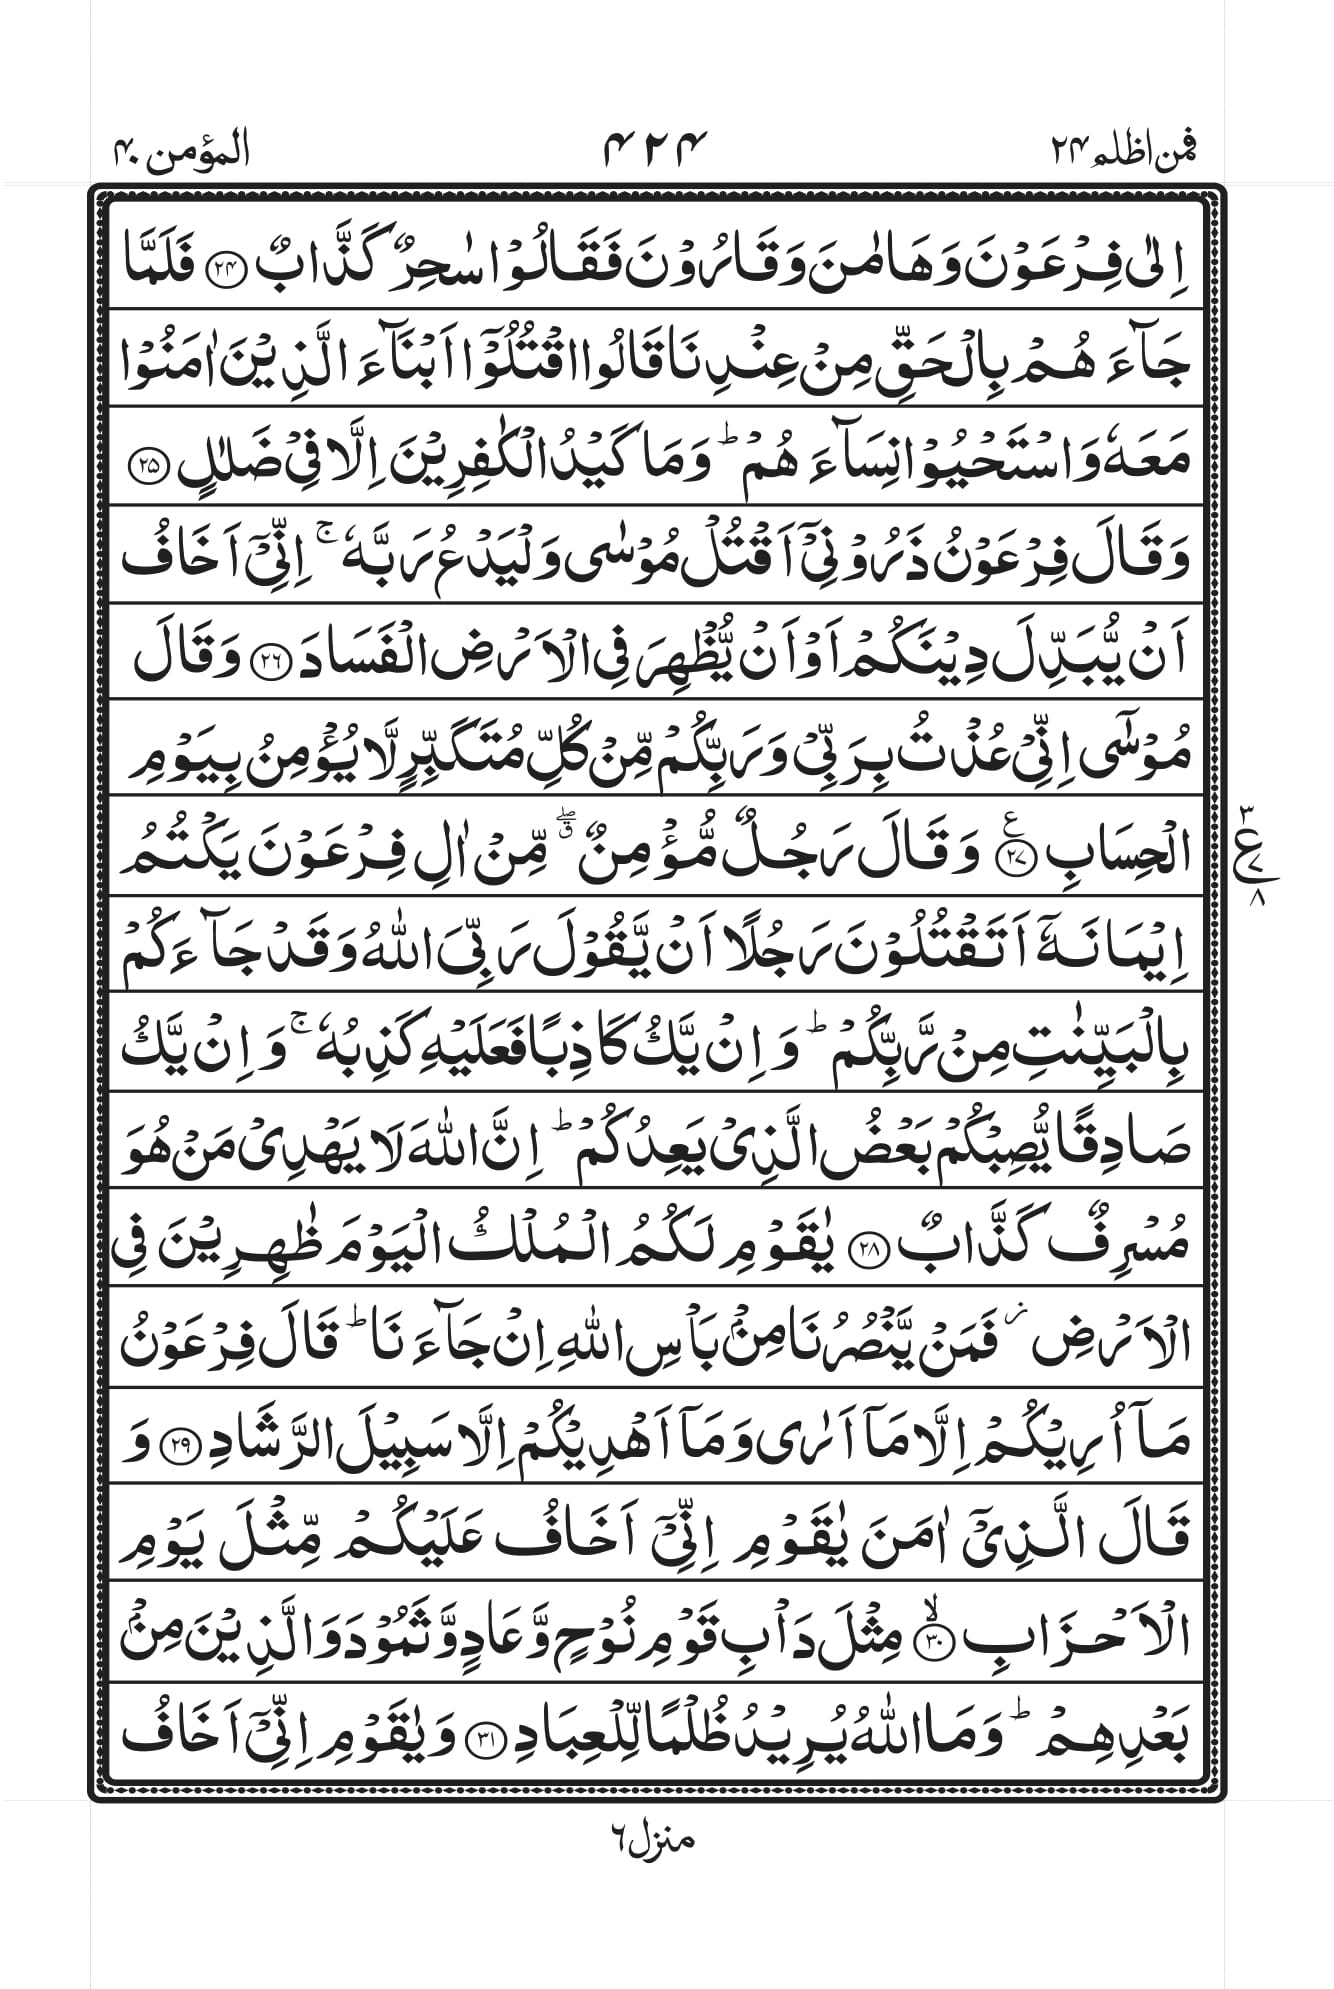 فمن اظلم ۲۴
۴۲۴
المؤمن ۴۰
اِلٰى فِرْعَوْنَ وَهَامٰنَ وَقَارُوْنَ فَقَالُوْا سٰحِرٌ كَذَّابٌ ۝۲۴ فَلَمَّا
جَآءَهُمْ بِالْحَقِّ مِنْ عِنْدِنَا قَالُوا اقْتُلُوْۤا اَبْنَآءَ الَّذِيْنَ اٰمَنُوْا
مَعَهٗ وَاسْتَحْيُوْا نِسَآءَهُمْ ؕ وَمَا كَيْدُ الْكٰفِرِيْنَ اِلَّا فِىْ ضَلٰلٍ ۝۲۵
وَقَالَ فِرْعَوْنُ ذَرُوْنِىْۤ اَقْتُلْ مُوْسٰى وَلْيَدْعُ رَبَّهٗ ۚ اِنِّىْۤ اَخَافُ
اَنْ يُّبَدِّلَ دِيْنَكُمْ اَوْ اَنْ يُّظْهِرَ فِى الْاَرْضِ الْفَسَادَ ۝۲۶ وَقَالَ
مُوْسٰٓى اِنِّىْ عُذْتُ بِرَبِّىْ وَرَبِّكُمْ مِّنْ كُلِّ مُتَكَبِّرٍ لَّا يُؤْمِنُ بِيَوْمِ
الْحِسَابِ ۝۲۷ ع وَقَالَ رَجُلٌ مُّؤْمِنٌ ۖق مِّنْ اٰلِ فِرْعَوْنَ يَكْتُمُ
۳
ع
۷
۸
اِيْمَانَهٗۤ اَتَقْتُلُوْنَ رَجُلًا اَنْ يَّقُوْلَ رَبِّىَ اللّٰهُ وَقَدْ جَآءَكُمْ
بِالْبَيِّنٰتِ مِنْ رَّبِّكُمْ ؕ وَاِنْ يَّكُ كَاذِبًا فَعَلَيْهِ كَذِبُهٗ ۚ وَاِنْ يَّكُ
صَادِقًا يُّصِبْكُمْ بَعْضُ الَّذِىْ يَعِدُكُمْ ؕ اِنَّ اللّٰهَ لَا يَهْدِىْ مَنْ هُوَ
مُسْرِفٌ كَذَّابٌ ۝۲۸ يٰقَوْمِ لَكُمُ الْمُلْكُ الْيَوْمَ ظٰهِرِيْنَ فِى
الْاَرْضِ ز فَمَنْ يَّنْصُرُنَا مِنْۢ بَاْسِ اللّٰهِ اِنْ جَآءَنَا ؕ قَالَ فِرْعَوْنُ
مَاۤ اُرِيْكُمْ اِلَّا مَاۤ اَرٰى وَمَاۤ اَهْدِيْكُمْ اِلَّا سَبِيْلَ الرَّشَادِ ۝۲۹ وَ
قَالَ الَّذِىْۤ اٰمَنَ يٰقَوْمِ اِنِّىْۤ اَخَافُ عَلَيْكُمْ مِّثْلَ يَوْمِ
الْاَحْزَابِ ۝۳۰ ۙ مِثْلَ دَاْبِ قَوْمِ نُوْحٍ وَّعَادٍ وَّثَمُوْدَ وَالَّذِيْنَ مِنْۢ
بَعْدِهِمْ ؕ وَمَا اللّٰهُ يُرِيْدُ ظُلْمًا لِّلْعِبَادِ ۝۳۱ وَيٰقَوْمِ اِنِّىْۤ اَخَافُ
منزل ۶